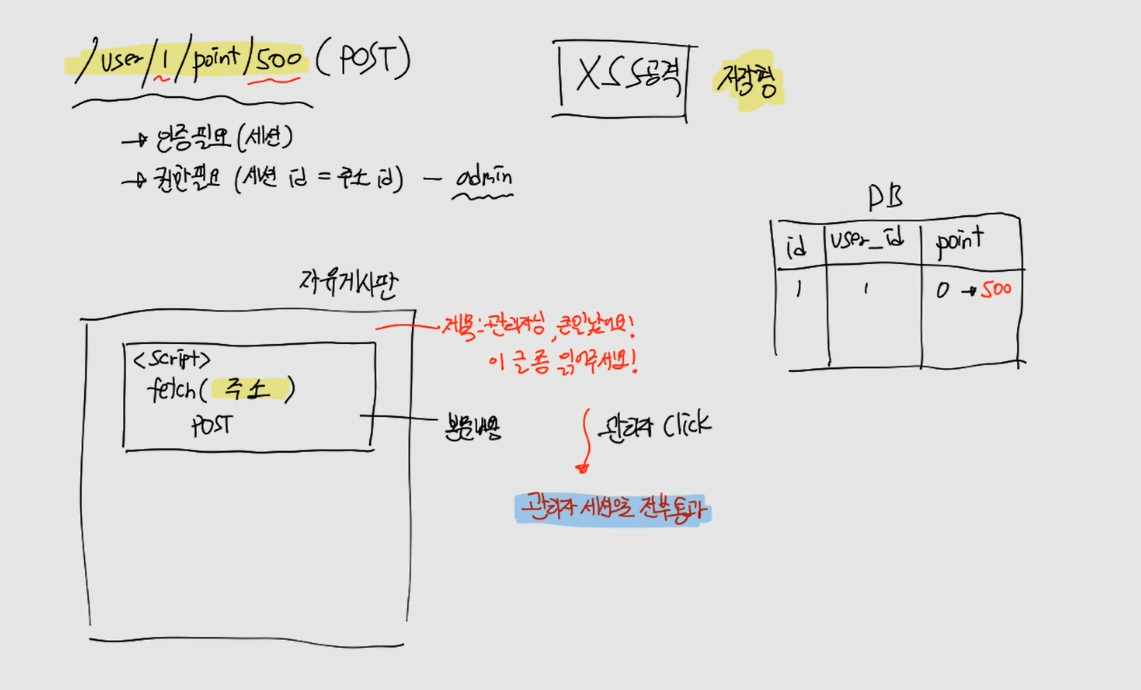 /user/1/point/500 (POST)
→ 인증필요 (세션)
→ 권한필요 (세션 id = 주소 id) - admin
XSS공격
저장형
DB
id user_id point
1 1 0 → 500
자유게시판
<script>
fetch( 주소 )
POST
제목: 관리자님, 큰일났어요!
이 글 좀 읽어주세요!
본문내용
관리자 Click
관리자 세션으로 전부통과